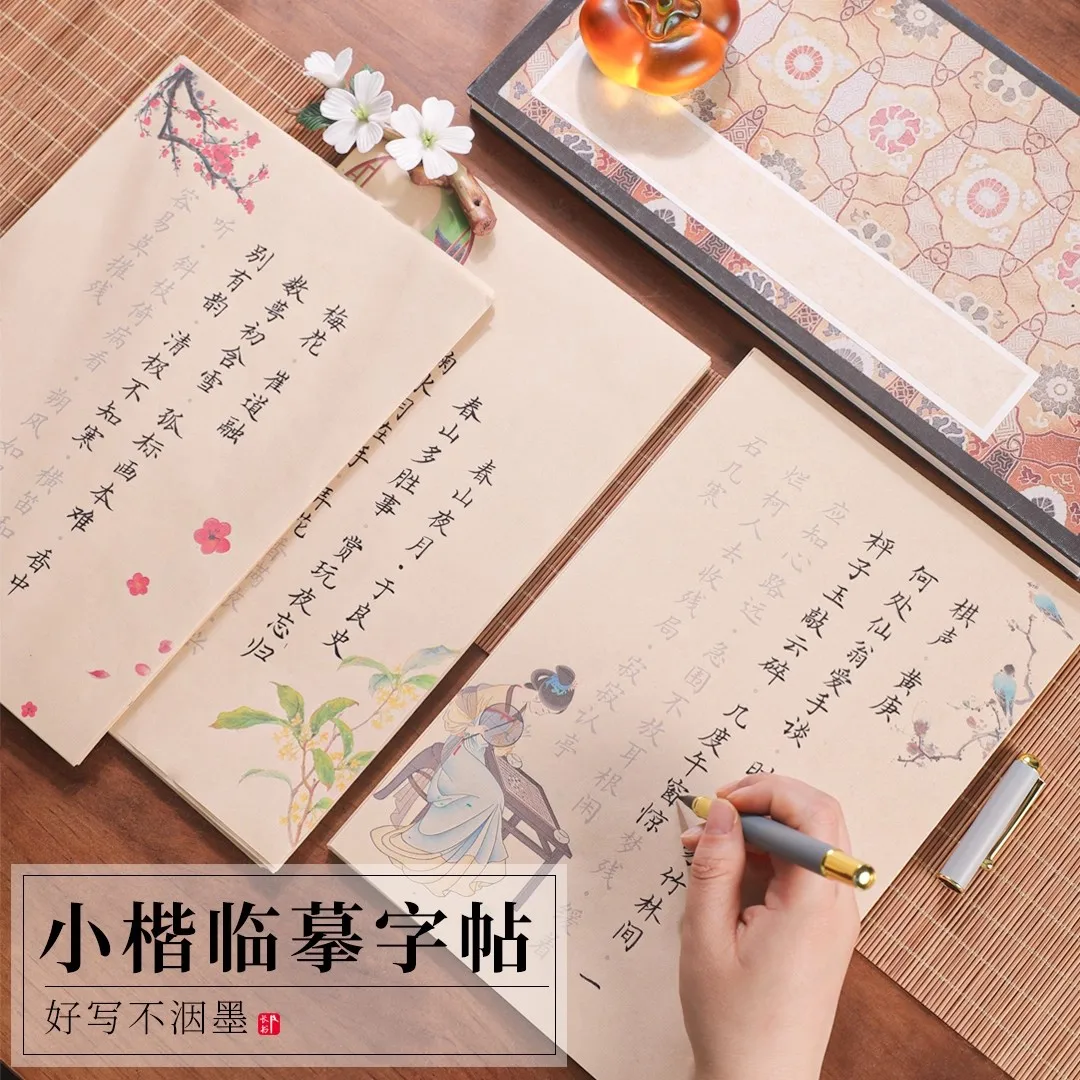 梅花·崔道融
数萼初含雪·孤标画本难·香中
别有韵·清极不知寒·横笛和
听·斜枝倚病看·朔风如
容易莫摧残
春山夜月·于良史
春山多胜事·赏玩夜忘归
掬水月在手·弄花香满衣·兴
棋声·黄庚
何处仙翁爱手谈·时 竹林间·一
枰子玉敲云碎·几度午窗惊梦残·缓着
应知心路远·急围不放耳根闲
烂柯人去收残局·寂寂认亭
石几寒
小楷临摹字帖
好写不洇墨